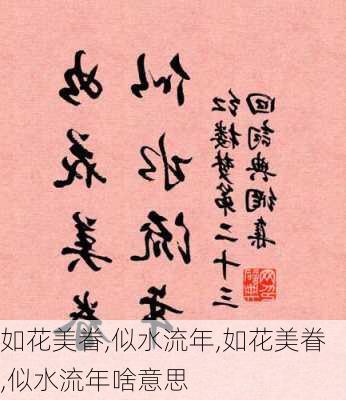 如花美眷
似水流年
红楼梦第二十三
回詞典網集
如花美眷,似水流年,如花美眷
,似水流年啥意思